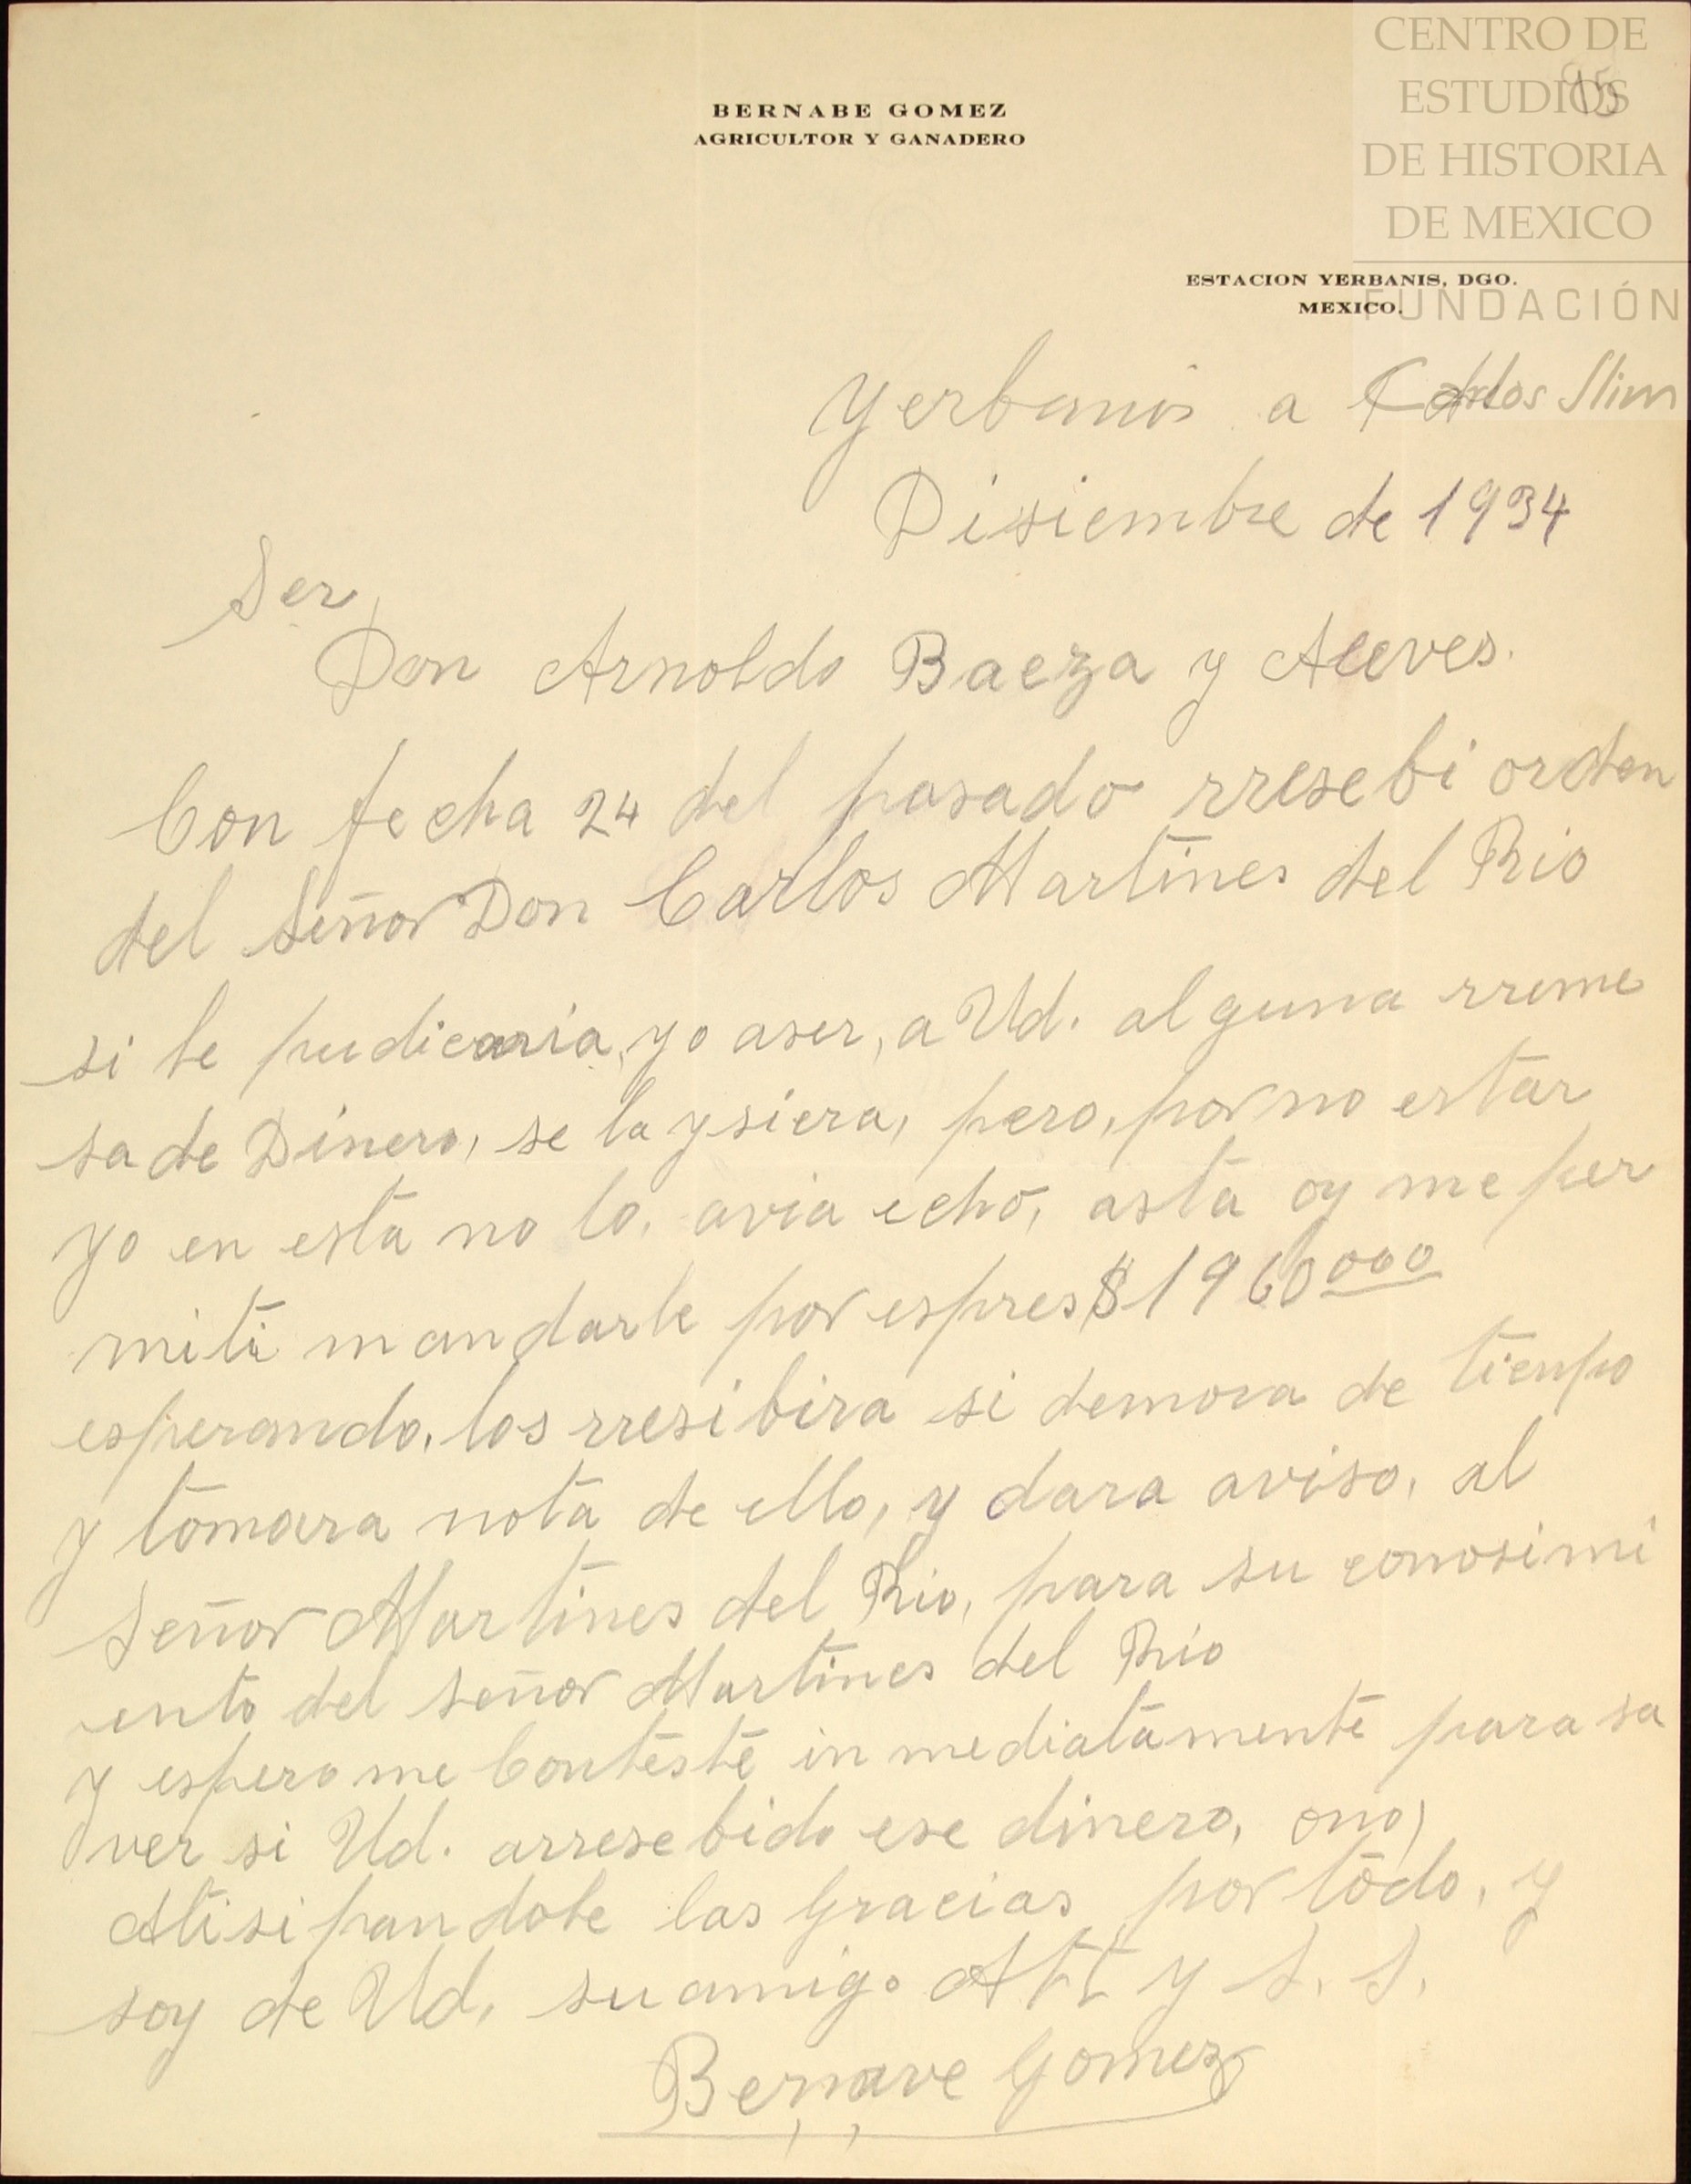 CENTRO DE
ESTUDIOS
DE HISTORIA
DE MEXICO
FUNDACIÓN
Carlos Slim
95
BERNABE GOMEZ
AGRICULTOR Y GANADERO
ESTACION YERBANIS, DGO.
MEXICO.
Yerbanis a
Disiembre de 1934
Ser
Don Arnoldo Baeza y Aceves.
Con fecha 24 del pasado rresebi orden
del Señor Don Carlos Martines del Rio
si le pudiera, yo aser, a Ud. alguna rreme
sa de Dinero, se la ysiera, pero, por no estar
yo en esta no lo, avia echo, asta oy me per
miti mandarle por espres $1960 000
esperando, los rresibira si demora de tienpo
y tomara nota de ello, y dara aviso, al
Señor Martines del Rio, para su conosimi
ento del señor Martines del Rio
y espero me Conteste inmediatamente para sa
ver si Ud. arresebido ese dinero, ono,
Atisipandole las Gracias por todo, y
soy de Ud, su amigo Att y S. S.
Bernave Gomez